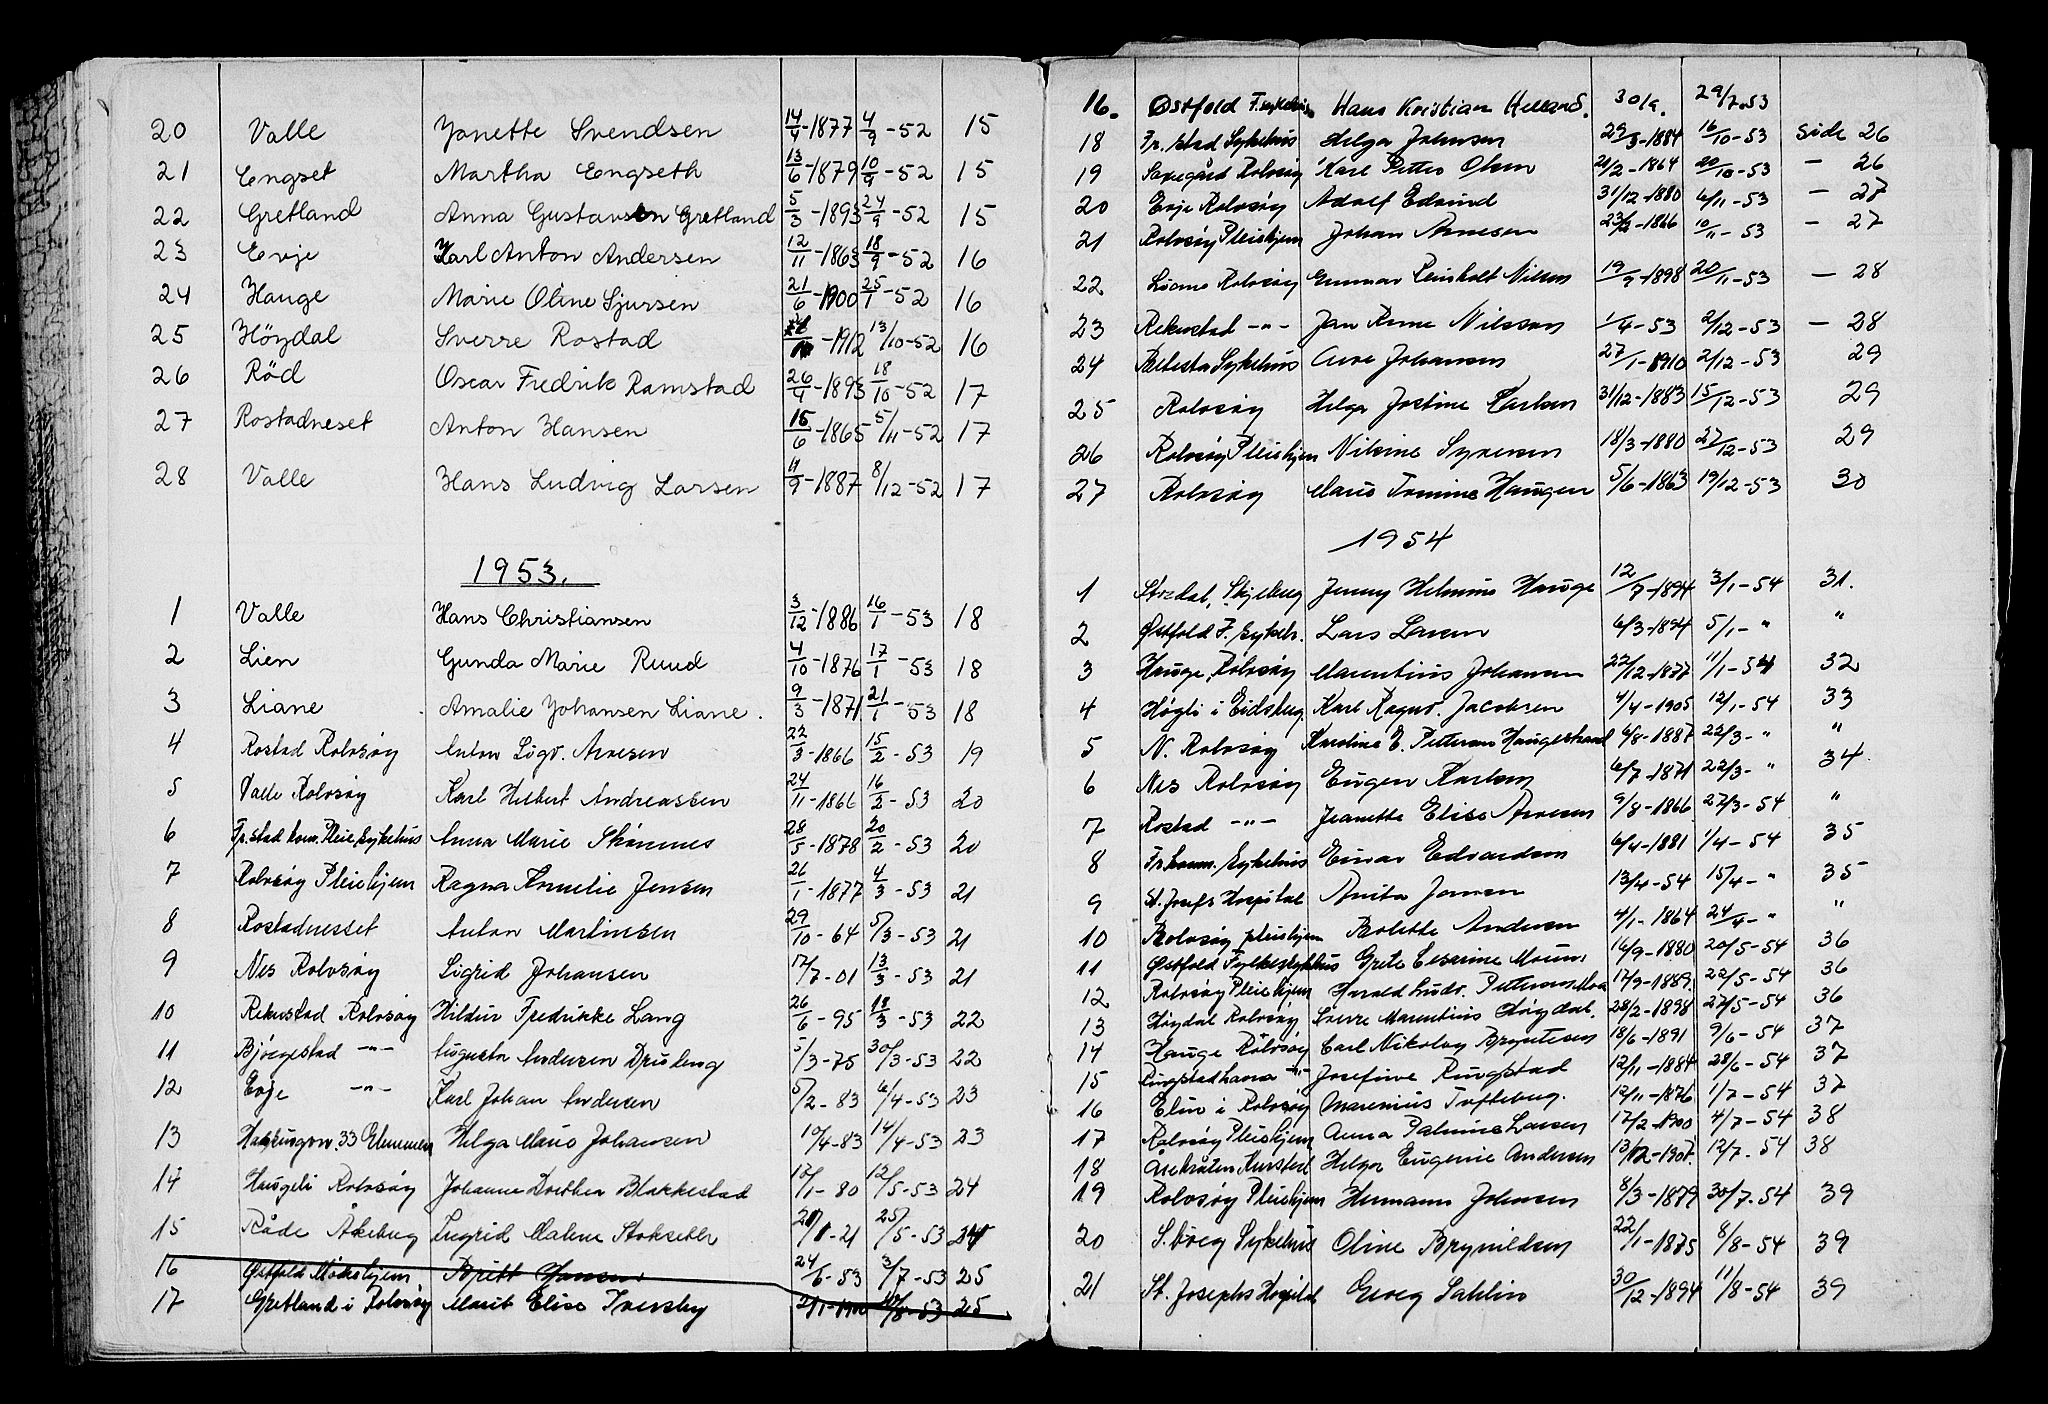 20 Valle Janette Svendsen 14/4-1877 4/9-52 15
21 Engset Martha Engseth 13/6-1879 10/9-52 15
22 Gretland Anna Gustavsen Gretland 5/3-1893 24/9-52 15
23 Evje Karl Anton Andersen 12/11-1863 18/9-52 16
24 Hauge Marie Oline Sjursen 21/6-1900 25/1-52 16
25 Höydal Sverre Rostad -1912 13/10-52 16
26 Röd Oscar Fredrik Ramstad 26/4-1893 18/10-52 17
27 Rostadneset Anton Hansen 15/6-1865 5/11-52 17
28 Valle Hans Ludvig Larsen 11/9-1887 8/12-52 17
1953.
1 Valle Hans Christiansen 3/12-1886 16/1-53 18
2 Lien Gunda Marie Ruud 4/10-1876 17/1-53 18
3 Liane Amalie Johansen Liane. 9/3-1871 21/1-53 18
4 Rostad Rolvsøy Anton Sigv. Arnesen 22/3-1866 15/2-53 19
5 Valle Rolvsøy Karl Hilbert Andreassen 24/11-1866 16/2-53 20
6 Fr.stad kom. Pleie, Sykehus Anna Marie 28/5-1878 20/2-53 20
7 Rolvsøy Pleiehjem Ragna Amelie Jensen 26/1-1877 4/3-53 21
8 Rostadnesset Anton Martinsen 29/10-64 5/3-53 21
9 Nes Rolvsøy Sigrid Johansen 17/7-01 13/3-53 21
10 Rekustad Rolvsøy Hildur Fredrikke Lang 26/6-95 18/3-53 22
11 Bjørgestad -"- Augusta Andersen 5/3-75 30/3-53 22
12 Evje -"- Karl Johan Andersen 5/2-83 6/4-53 23
13 33 Helga Marie Johansen 10/4-83 14/4-53 23
14 Haugeli Rolvsøy Johanne Dorthea Blakkestad 12/1-80 12/5-53 24
15 Råde Åkeberg Ingrid Malene -21 25/5-53 24
16 Østfold Britt Hansen 24/6-83 3/7-53 25
17 Gretland i Rolvsøy Marit Elise Iversby -53 25
16. Østfold F.sykehus Hans Kristian Helland. 30/9. 29/7.53
18 Fr.stad Sykehus Helga Johansen 29/3-1884 16/10-53 side 26
19 Rolvsøy Karl Petter Olsen 21/2-1864 20/10-53 — 26
20 Evje Rolvsøy Adolf Edvind 31/12-1880 6/11-53 — 27
21 Rolvsøy Pleiehjem Johan Arnesen 23/2-1866 10/11-53 — 27
22 Liane Rolvsøy Gunnar Reinholt Nilsen 19/9-1898 20/11-53 — 28
23 Rekustad -"- Jan Rune Nilsson 1/4-53 2/12-53 — 28
24 Sykehus Arve Johansen 27/1-1910 2/12-53 29
25 Rolvsøy Helga Jostine Karlsen 31/12-1883 15/12-53 29
26 Rolvsøy Pleiehjem Nilsine Syversen 18/3-1880 27/12-53 29
27 Rolvsøy Marie Tomine Haugen 5/6-1863 19/12-53 30
1954
1 Skjeberg Jenny Helmine Hauge 12/7-1894 3/1-54 31.
2 Østfold F. Sykeh. Lars Larsen 6/3-1894 5/1-" "
3 Hauge, Rolvsøy Marentius Johansen 22/12-1877 11/1-54 32
4 Høgli i Eidsberg Karl Ragnv. Jacobsen 4/4-1905 12/1-54 33
5 N. Rolvsøy Karoline E. Pettersen Haugestrand 6/8-1887 22/3-" "
6 Nes Rolvsøy Eugen Karlsen 6/7-1871 22/3-" 34
7 Rostad -"- Jeanette Elise Arnesen 9/8-1866 27/3-54 "
8 Fr. komm. Sykehus Einar Edvardsen 6/4-1881 1/4-54 35
9 St. Josefs Hospital Anita Jansen 13/4-54 15/4-" 35
10 Rolvsøy pleiehjem Bolette Andersen 4/1-1864 24/4-" "
11 Østfold Fylkessykehus Grete Cesarine Moum 16/9-1880 20/5-54 36
12 Rolvsøy Pleiehjem Harald Ludv. Pettersen Moa 17/9-1889. 22/5-54 36
13 Høydal Rolvsøy Sverre Marentius Høydal. 28/2-1898 27/5-54 36
14 Hauge Rolvsøy Carl Nikolay Bryntesen 18/6-1891 9/6-54 37
15 Ringstadhavna -"- Josefine Ringstad 12/11-1884 28/6-54 37
16 Elin i Rolvsøy Marenius Tofteberg. 12/11-1876 1/7-54 37
17 Rolvsøy Pleiehjem Anna Palmine Larsen 17/2-1900 4/7-54 38
18 Helga Eugenie Andersen 13/12-1901. 12/7.54 38
19 Rolvsøy Pleiehjem Hermann Johansen 8/3-1879 30/7-54 39
20 S.borg Sykehus Oline Brynildsen 22/1-1875 8/8-54 39
21 St. Josephs Hospital Georg Sahlin 30/12-1894 11/8-54 39